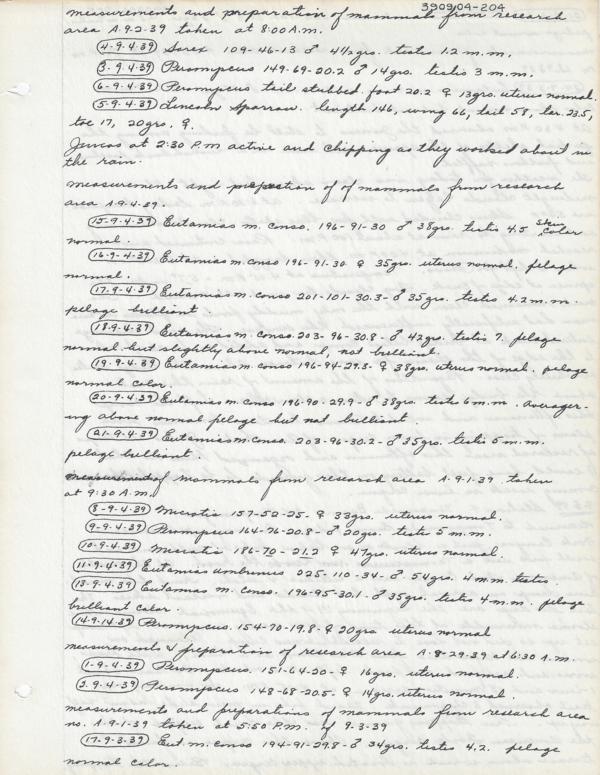 3909/04-204
measurements and preparation of mammals from research
area A.9-2-39 taken at 8:00 A.M.
4-9-4-39 Sorex 109-46-13 ♂ 4½ grs. testis 1.2 m.m.
3-9-4-39 Peromyscus 149-69-20.2 ♂ 14 grs. testis 3 m.m.
6-9-4-39 Peromyscus tail stubbed. foot 20.2 ♀ 13 grs. uterus normal.
5-9-4-39 Lincoln Sparrow. length 146, wing 66, tail 58, tar. 23.5,
toe 17, 20 grs. ♀.
Juncos at 2:30 P.M active and chipping as they worked about in
the rain.
measurements and preparation of of mammals from research
area A-9-4-39.
15-9-4-39 Eutamias m. conso. 196-91-30 ♂ 38 grs. testis 4.5 skin color
normal.
16-9-4-39 Eutamias m. conso 196-91-30 ♀ 35 grs. uterus normal. pelage
normal.
17-9-4-39 Eutamias m. conso 201-101-30.3-♂ 35 grs. testis 4.2 m.m.
pelage brilliant.
18-9-4-39 Eutamias m. conso. 203-96-30.8-♂ 42 grs. testis 7. pelage
normal but slightly above normal, not brilliant.
19-9-4-39 Eutamias m. conso 196-94-29.3-♀ 38 grs. uterus normal. pelage
normal color.
20-9-4-39 Eutamias m. conso 196-90-29.9-♂ 38 grs. testis 6 m.m. averager-
ing above normal pelage but not brilliant.
21-9-4-39 Eutamias m. conso. 203-96-30.2-♂ 35 grs. testis 5 m.m.
pelage brilliant.
measurements of mammals from research area A.9-1-39 taken
at 9:30 A.M.
8-9-4-39 Microtis 157-52-25-♀ 33 grs. uterus normal.
9-9-4-39 Peromyscus 164-76-20.8-♂ 20 grs. testis 5 m.m.
10-9-4-39 Microtis 186-70-21.2 ♀ 47 grs. uterus normal.
11-9-4-39 Eutamias umbrinus 225-110-34-♂ 54 grs. 4 m.m. testis.
13-9-4-39 Eutamias m. conso. 196-95-30.1-♂ 35 grs. testis 4 m.m. pelage
brilliant color.
14-9-14-39 Peromyscus. 154-70-19.8-♀ 20 grs uterus normal
measurements & preparation of research area A-8-29-39 at 6:30 A.M.
1-9-4-39 Peromyscus. 151-64-20-♀ 16 grs. uterus normal.
2-9-4-39 Peromyscus 148-68-20.5-♀ 14 grs. uterus normal.
measurements and preparations of mammals from research area
no. A-9-1-39 taken at 5:50 P.M. of 9-3-39
17-9-3-39 Eut. m. conso 194-91-29.8-♂ 34 grs. testis 4.2. pelage
normal color.